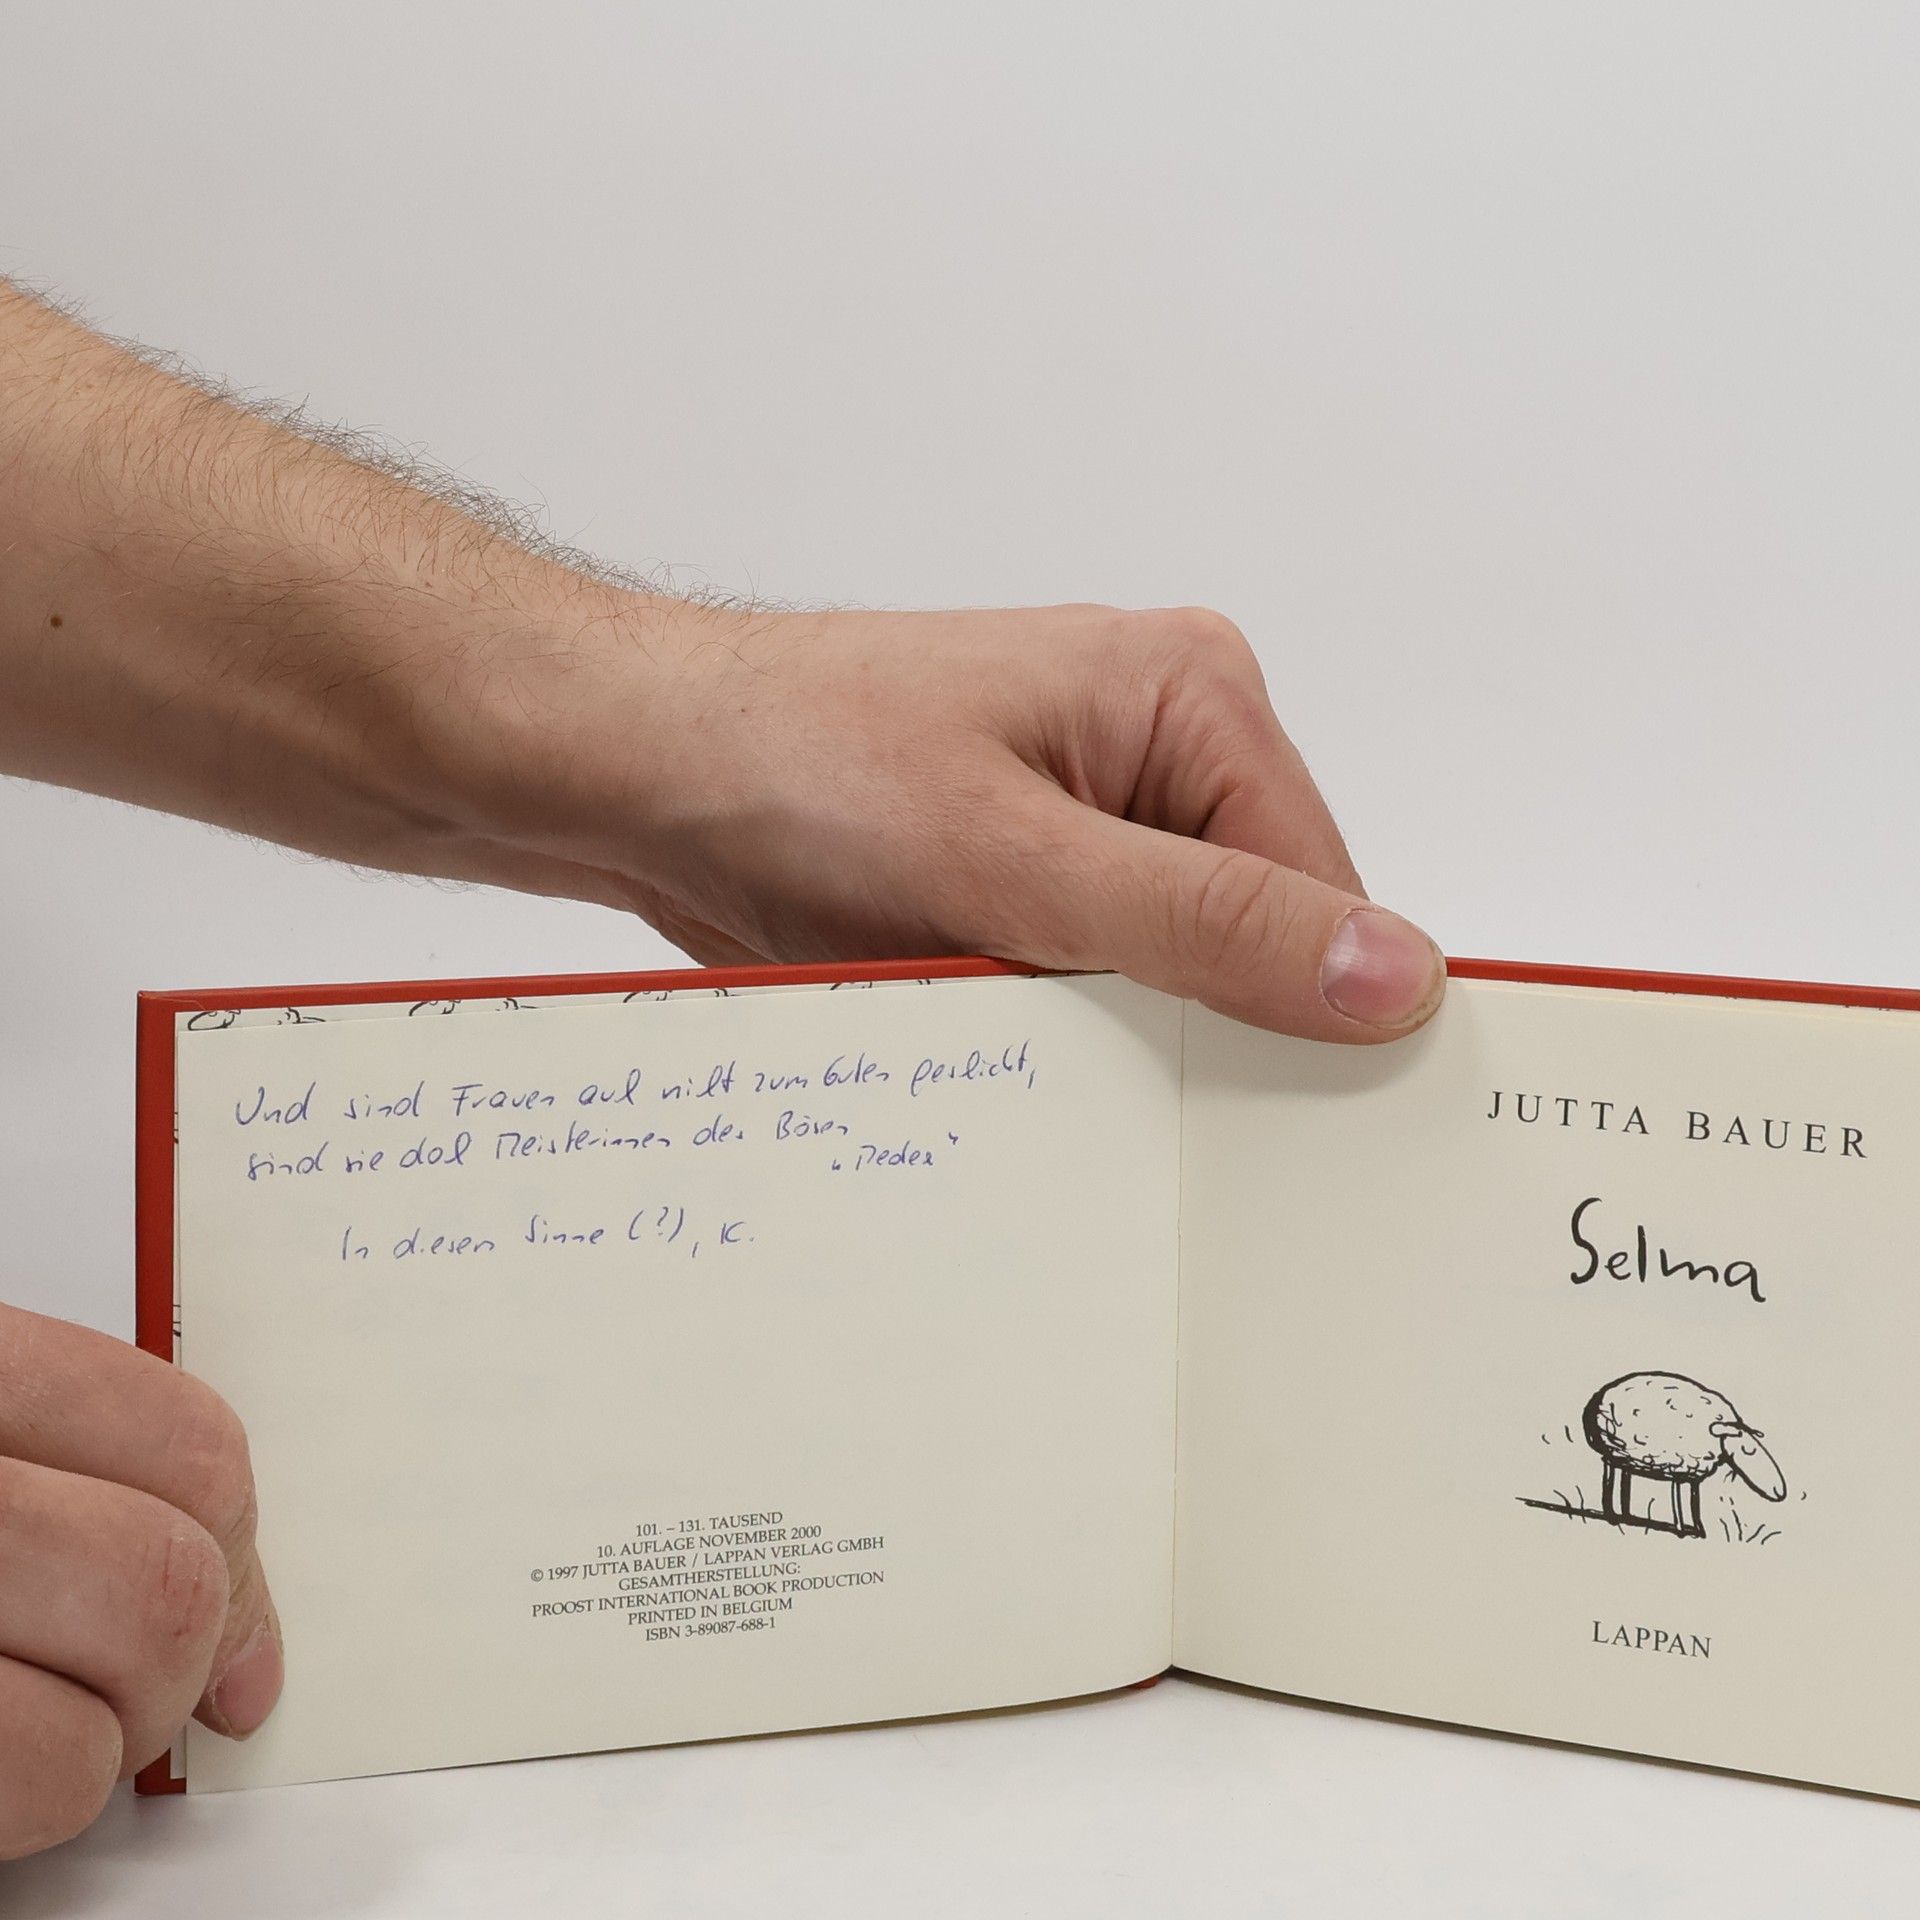 Und sind Frauen auch nicht zum Guten geschickt,
sind sie doch Meisterinnen des Bösen
„Medea“
In diesem Sinne (?), K.
101. – 131. TAUSEND
10. AUFLAGE NOVEMBER 2000
© 1997 JUTTA BAUER / LAPPAN VERLAG GMBH
GESAMTHERSTELLUNG:
PROOST INTERNATIONAL BOOK PRODUCTION
PRINTED IN BELGIUM
ISBN 3-89087-688-1
JUTTA BAUER
Selma
LAPPAN